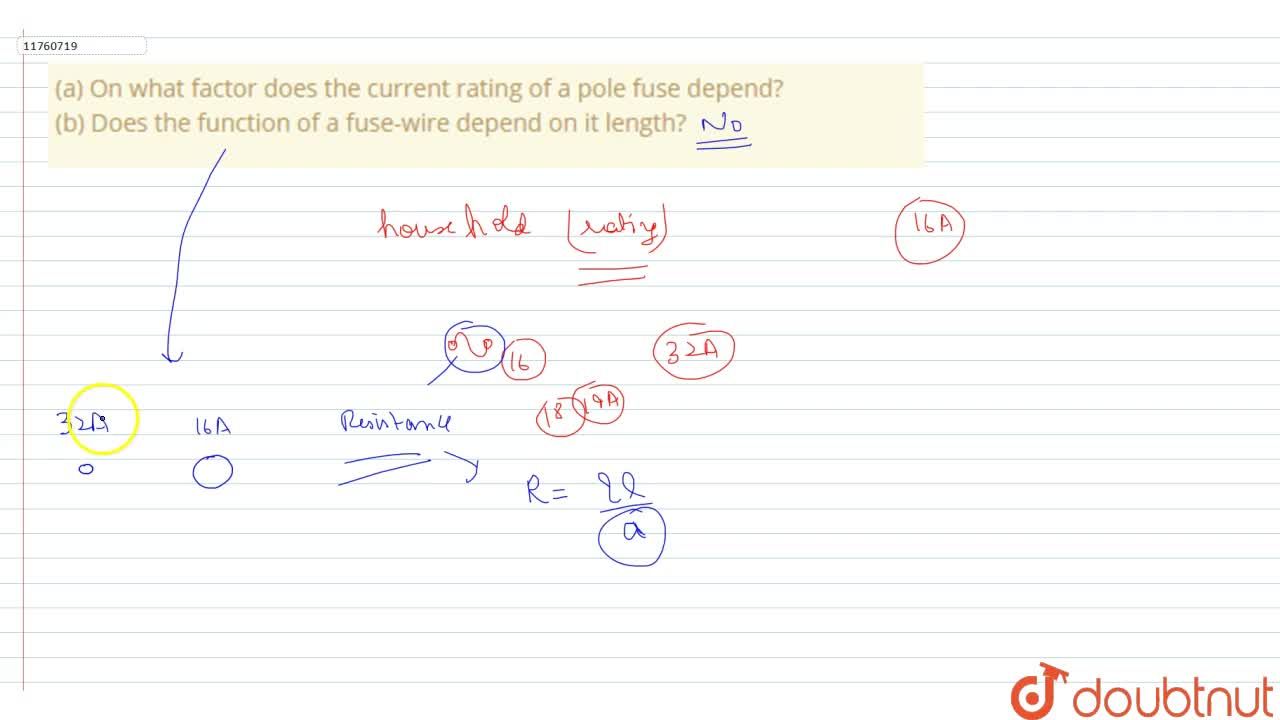 11760719
(a) On what factor does the current rating of a pole fuse depend?
(b) Does the function of a fuse-wire depend on it length? No
household (rating) 16A
16 32A
32A 16A Resistance 18 19A
R = ρl
a
doubtnut